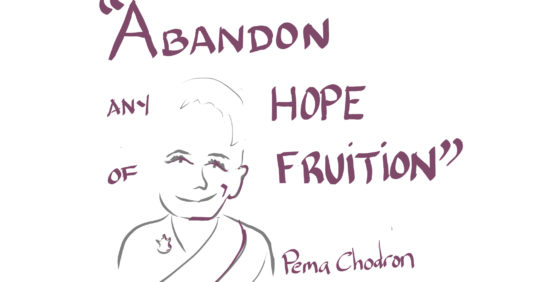 “ABANDON
ANY HOPE
OF FRUITION”
Pema Chodron